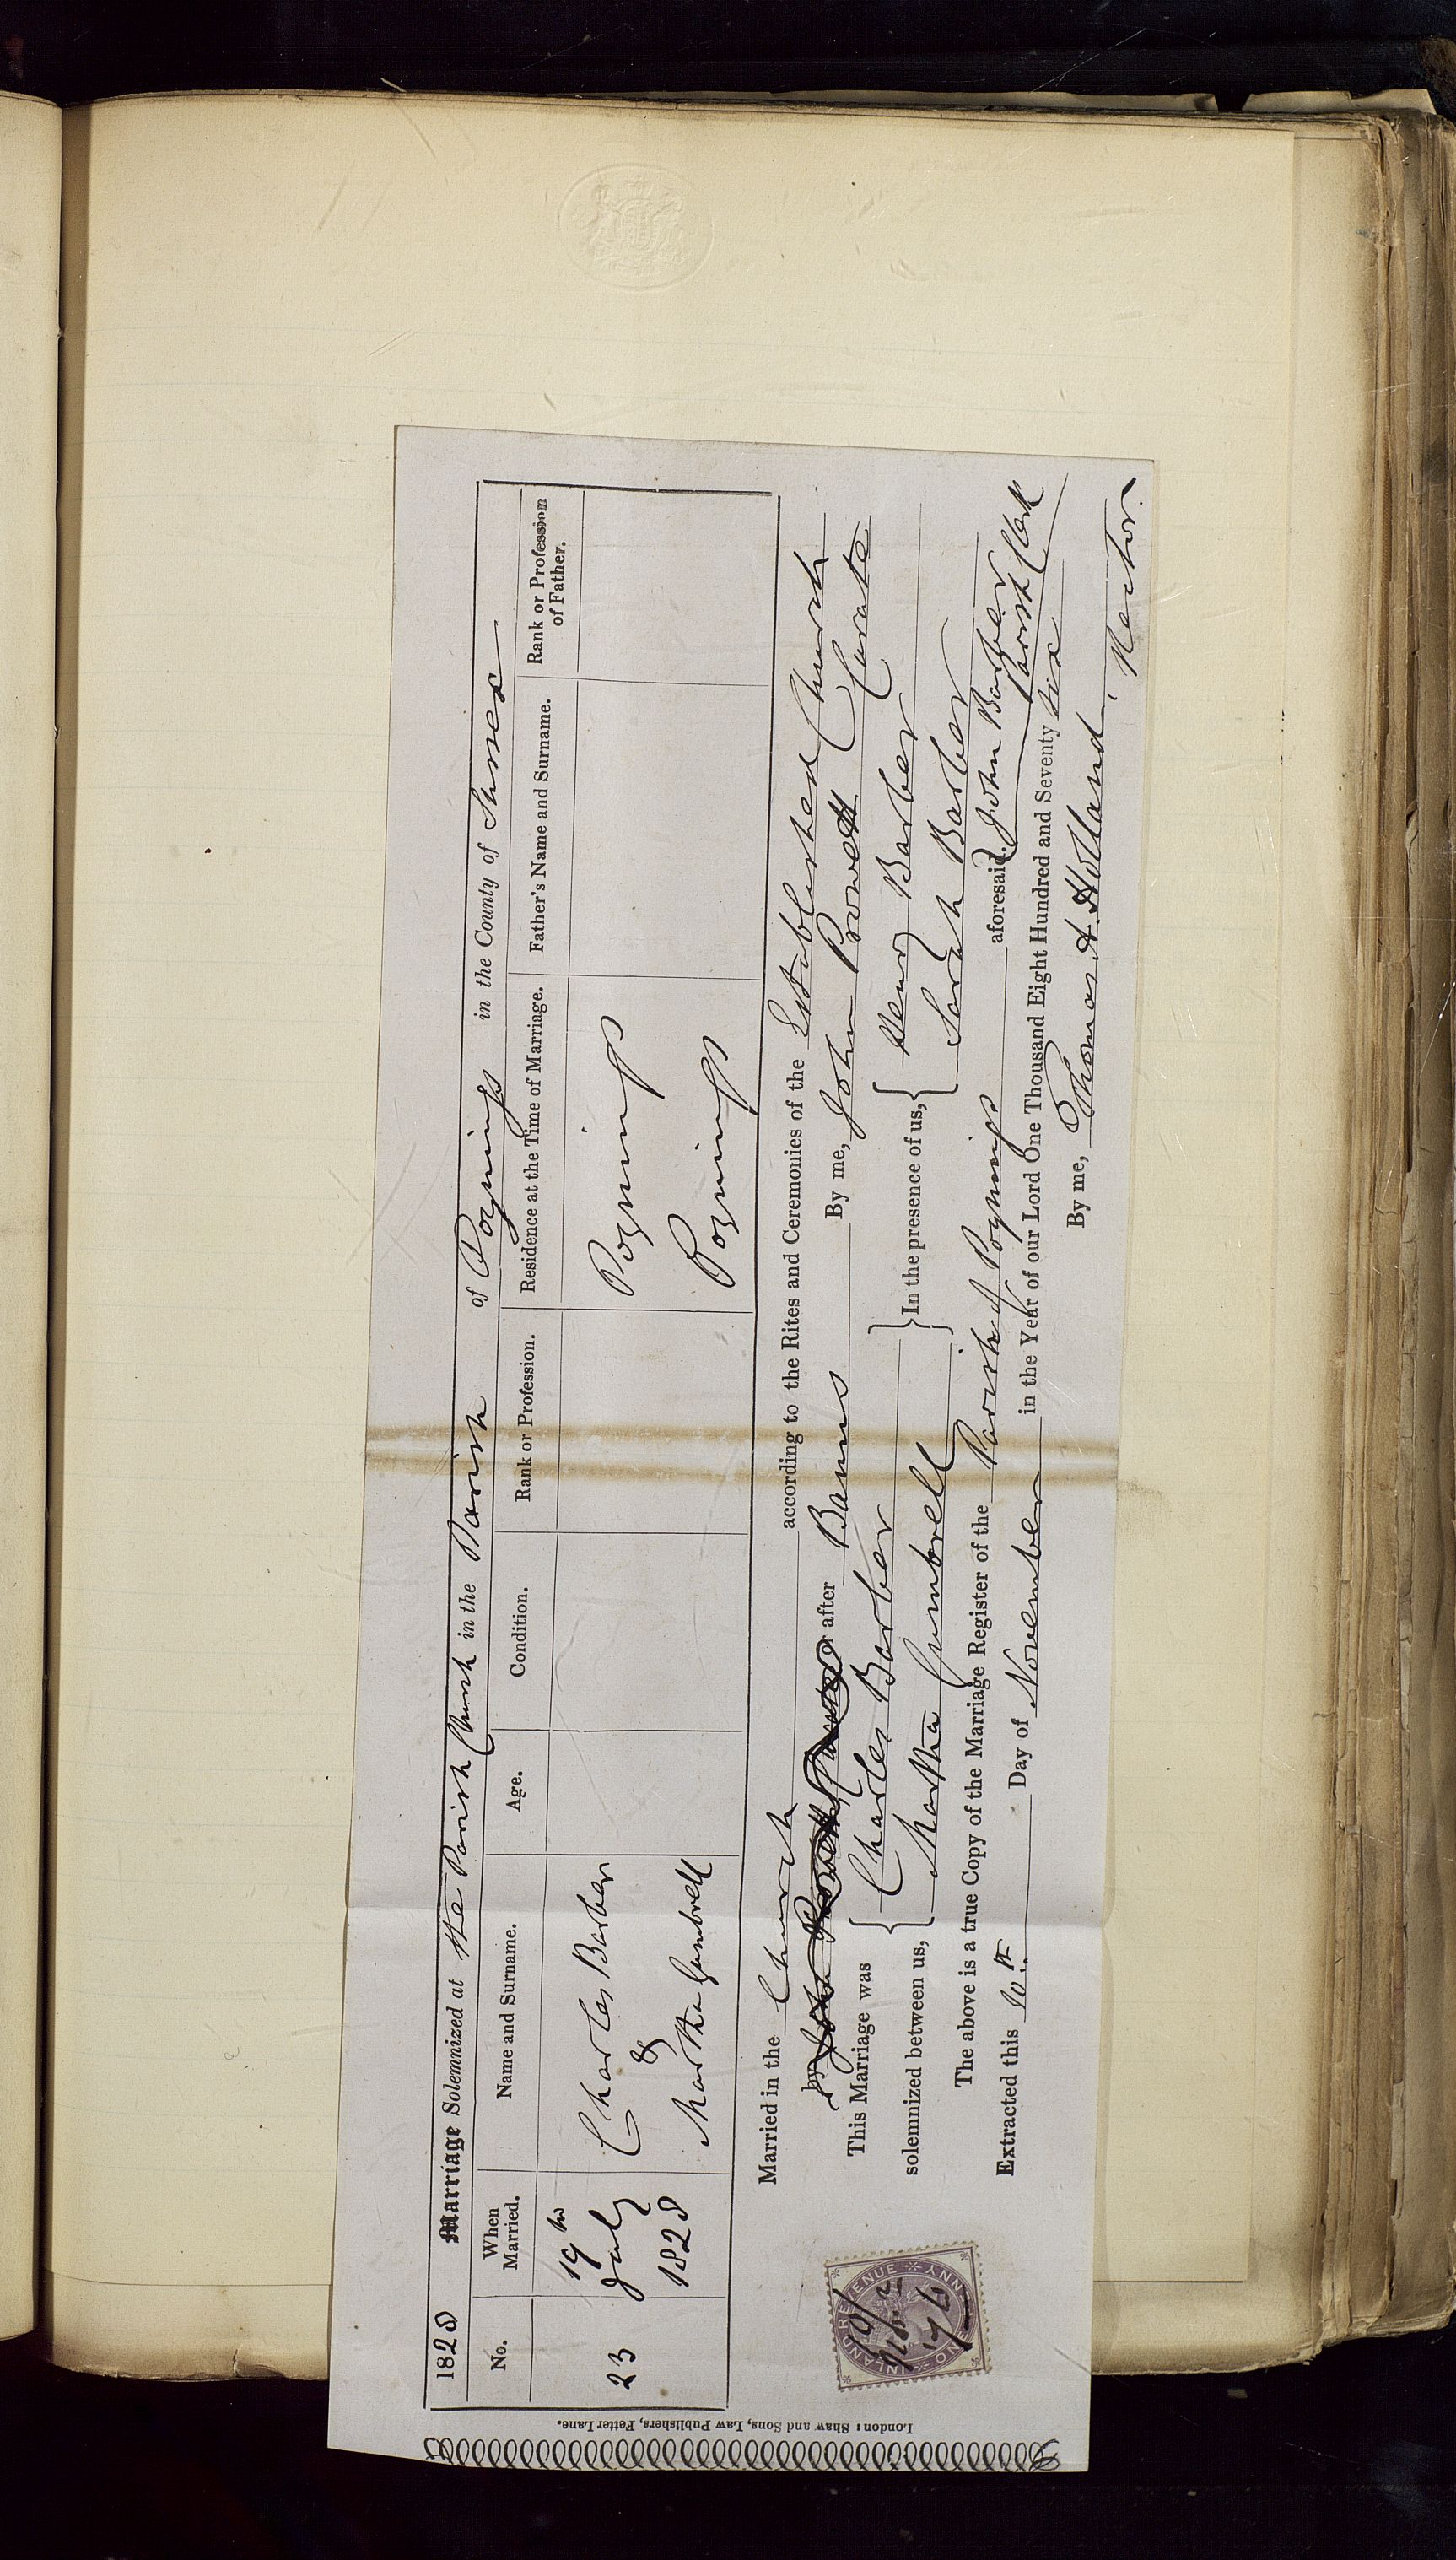 1828 Marriage Solemnized at the Parish Church in the Parish of Poynings in the County of Sussex
No. When Married. Name and Surname. Age. Condition. Rank or Profession. Residence at the Time of Marriage. Father's Name and Surname. Rank or Profession of Father.
23 19th July 1828 Charles Barber & Martha Gumbrell Poynings Poynings
Married in the Church according to the Rites and Ceremonies of the Established Church
by John Prowett Curate or after Banns By me, John Prowett Curate
This Marriage was solemnized between us, { Charles Barber } In the presence of us, { Henry Barber
Martha Gumbrell Sarah Barber
The above is a true Copy of the Marriage Register of the Parish of Poynings aforesaid. } John Barber Parish Clerk
Extracted this 10th Day of November in the Year of our Lord One Thousand Eight Hundred and Seventy six
By me, Thomas A. Holland, Rector.
INLAND REVENUE ONE PENNY
10/
76
London: Shaw and Sons, Law Publishers, Fetter Lane.